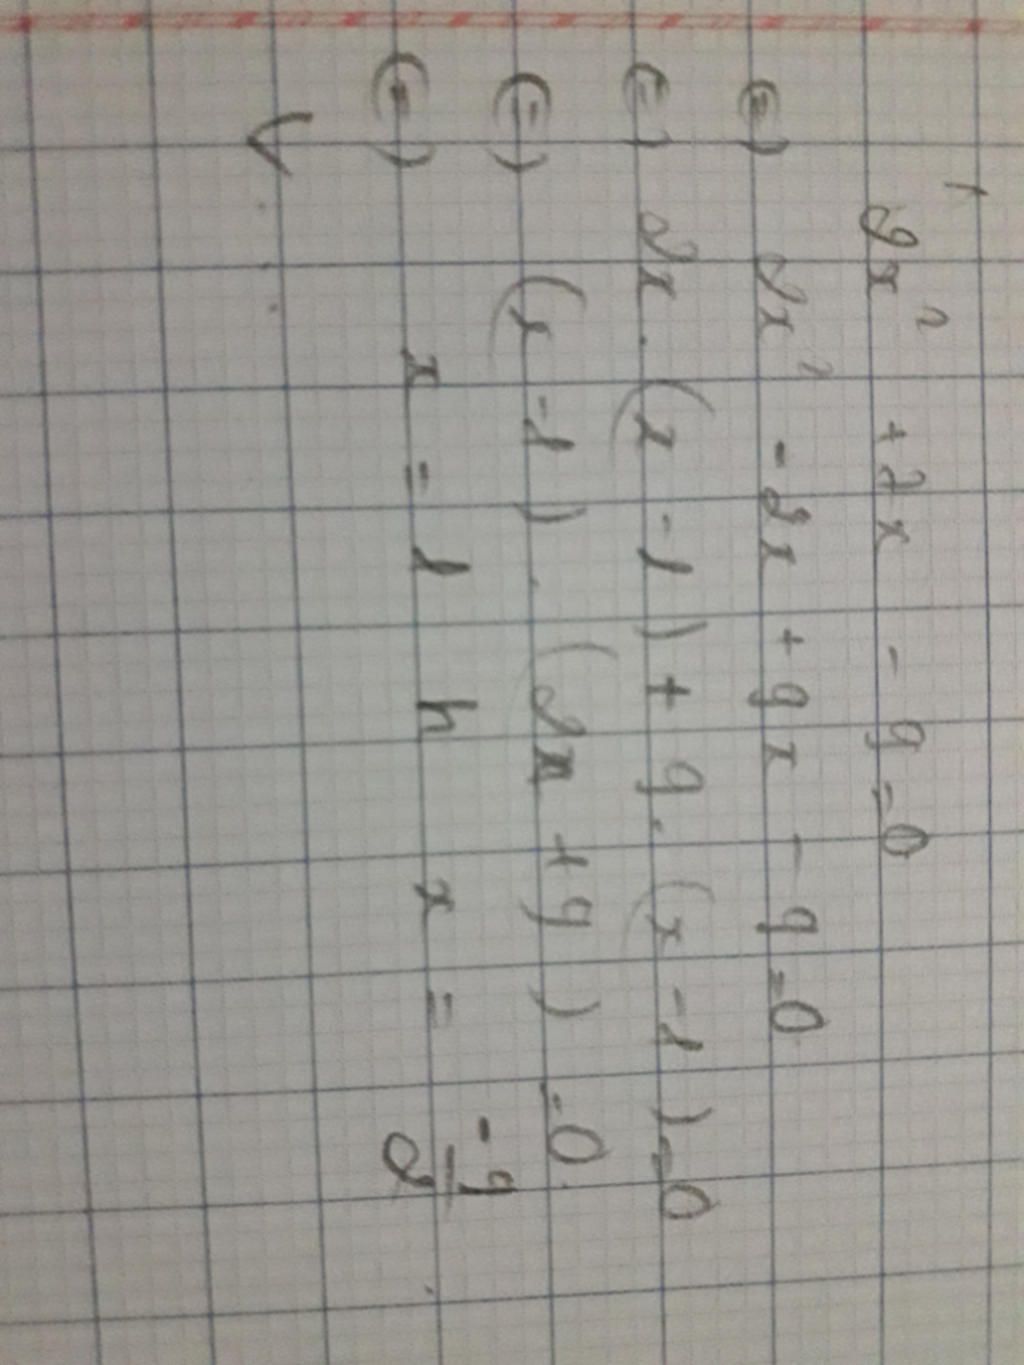 2x² + 7x - 9 = 0
(=) 2x² - 2x + 9x - 9 = 0
(=) 2x . (x - 1) + 9 . (x - 1) = 0
(=) (x - 1) . (2x + 9) = 0
(=) x = 1 h x = -9/2
V